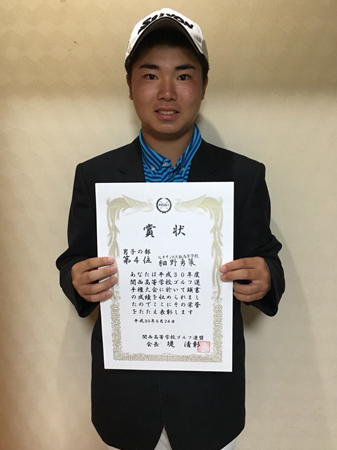 SRIXON
賞状
男子の部
第4位 ルネサンス大阪高等学校
細野勇策
あなたは平成30年度
関西高等学校ゴルフ選
手権大会に於いて頭書
の成績を収められまし
たのでここにその栄誉
をたたえ表彰します
平成30年6月24日
関西高等学校ゴルフ連盟
会長 堤 清